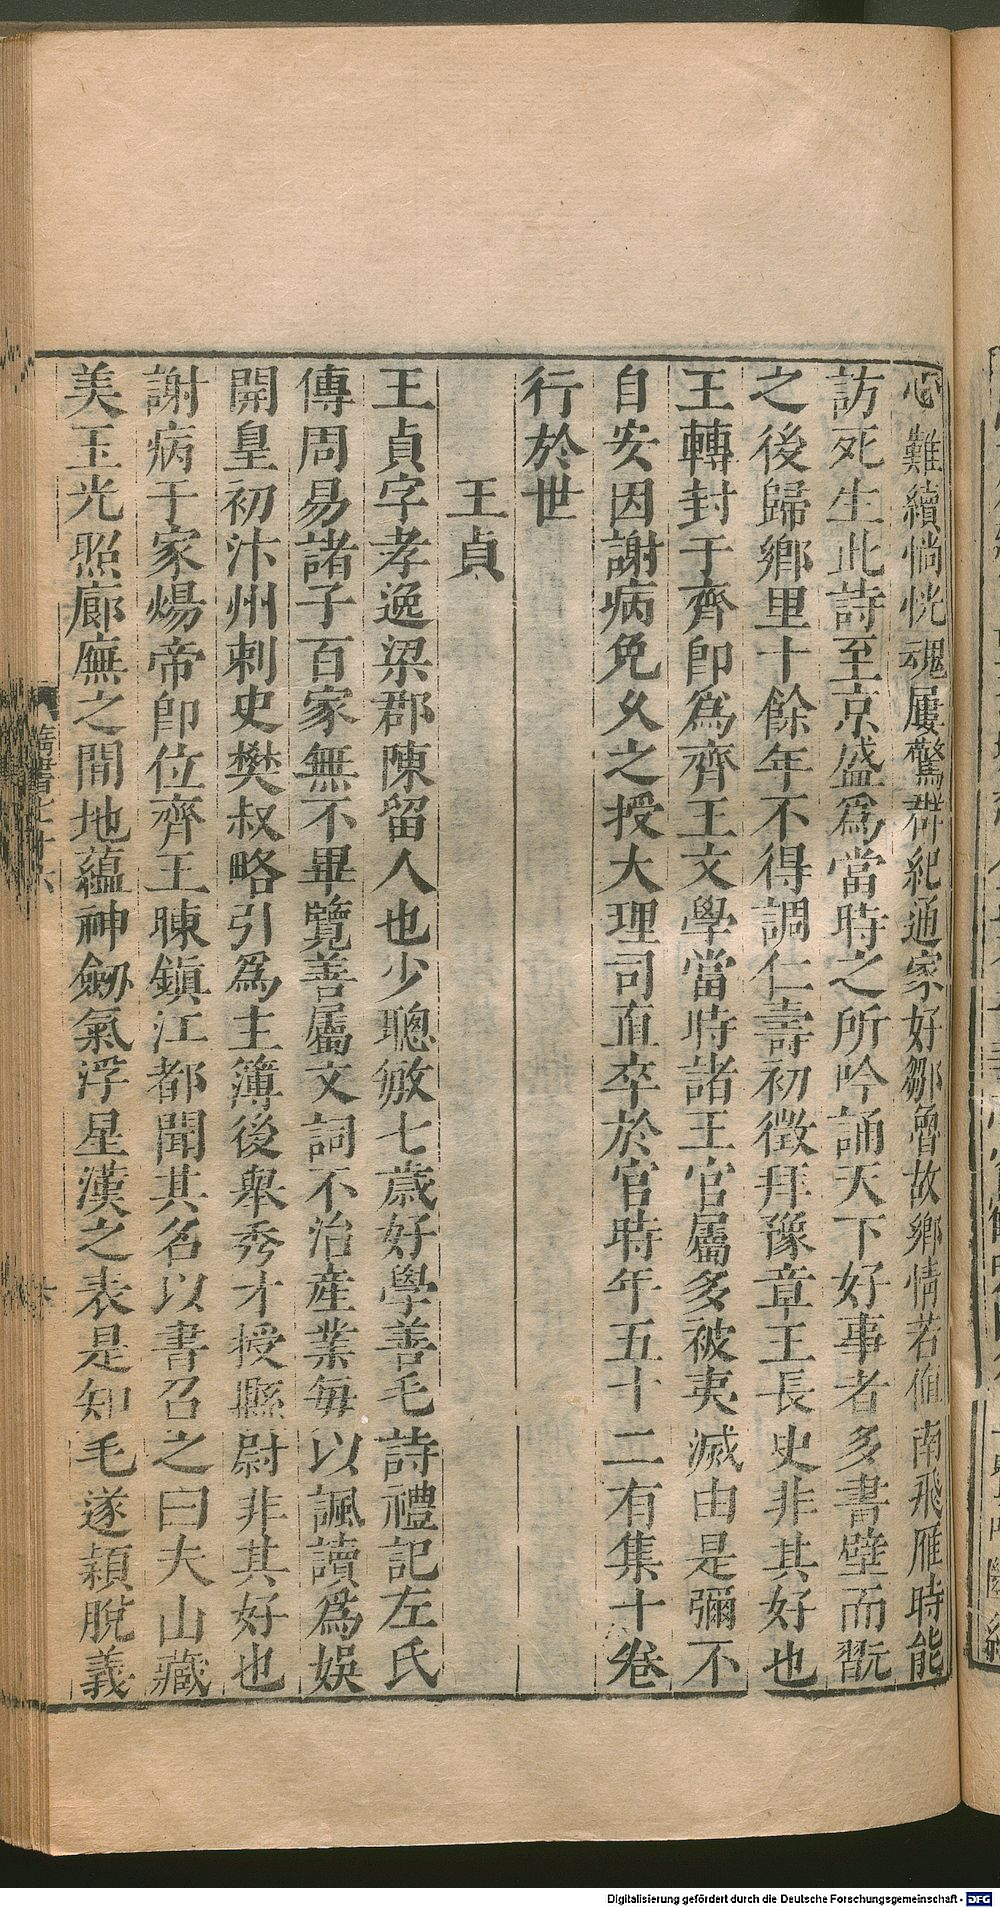 心難續惝恍魂屢驚群紀通家好鄒魯故鄉情若値南飛雁時能
訪死生此詩至京盛爲當時之所吟誦天下好事者多書壁而翫
之後歸鄉里十餘年不得調仁壽初徵拜豫章王長史非其好也
王轉封于齊卽爲齊王文學當時諸王官屬多被夷滅由是彌不
自安因謝病免久之授大理司直卒於官時年五十二有集十卷
行於世
王貞
王貞字孝逸梁郡陳留人也少聰敏七歲好學善毛詩禮記左氏
傳周易諸子百家無不畢覽善屬文詞不治產業每以諷讀爲娛
開皇初汴州刺史樊叔略引爲主簿後舉秀才授縣尉非其好也
謝病于家煬帝卽位齊王暕鎮江都聞其名以書召之曰夫山藏
美玉光照廊廡之間地蘊神劒氣浮星漢之表是知毛遂穎脫義
隋書七十六
Digitalisierung gefördert durch die Deutsche Forschungsgemeinschaft - DFG